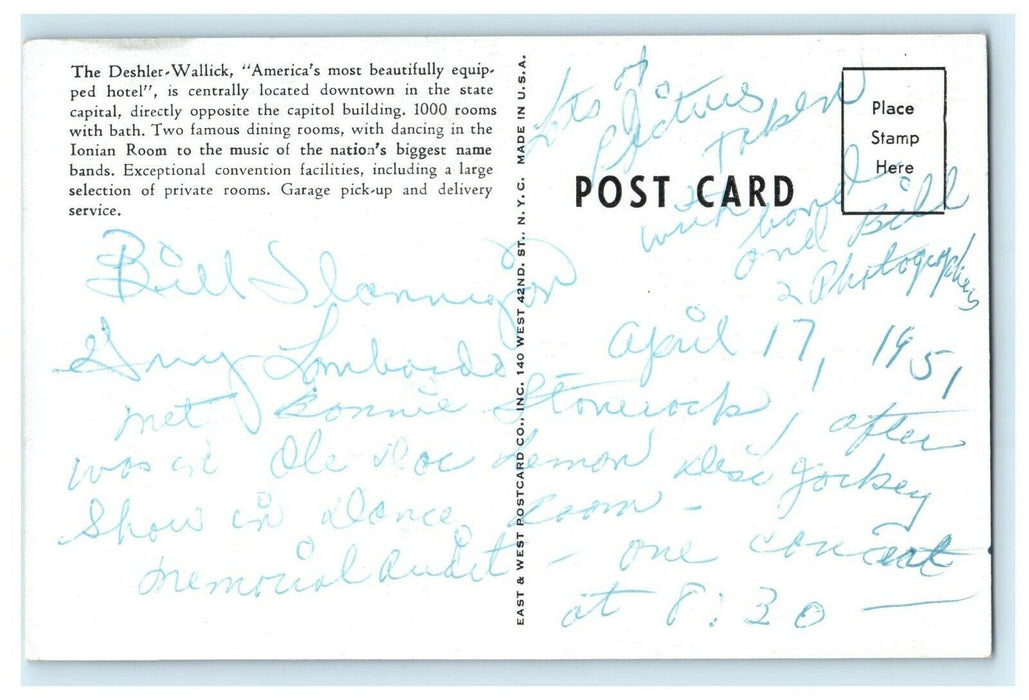 The Deshler-Wallick, "America's most beautifully equip-
ped hotel", is centrally located downtown in the state
capital, directly opposite the capitol building. 1000 rooms
with bath. Two famous dining rooms, with dancing in the
Ionian Room to the music of the nation's biggest name
bands. Exceptional convention facilities, including a large
selection of private rooms. Garage pick-up and delivery
service.
EAST & WEST POSTCARD CO., INC. 140 WEST 42ND. ST., N.Y.C. MADE IN U.S.A.
POST CARD
Place
Stamp
Here
Lots of
Pictures
Taken
with band
and Bill
2 Photographers
Bill Flannigan
Guy Lombardo April 17, 1951
met Bonnie Stonerock, after
was in Ole Doc Lemon Disc Jockey
Show in Dance Room -
Memorial Audit - one concert
at 8:30 -